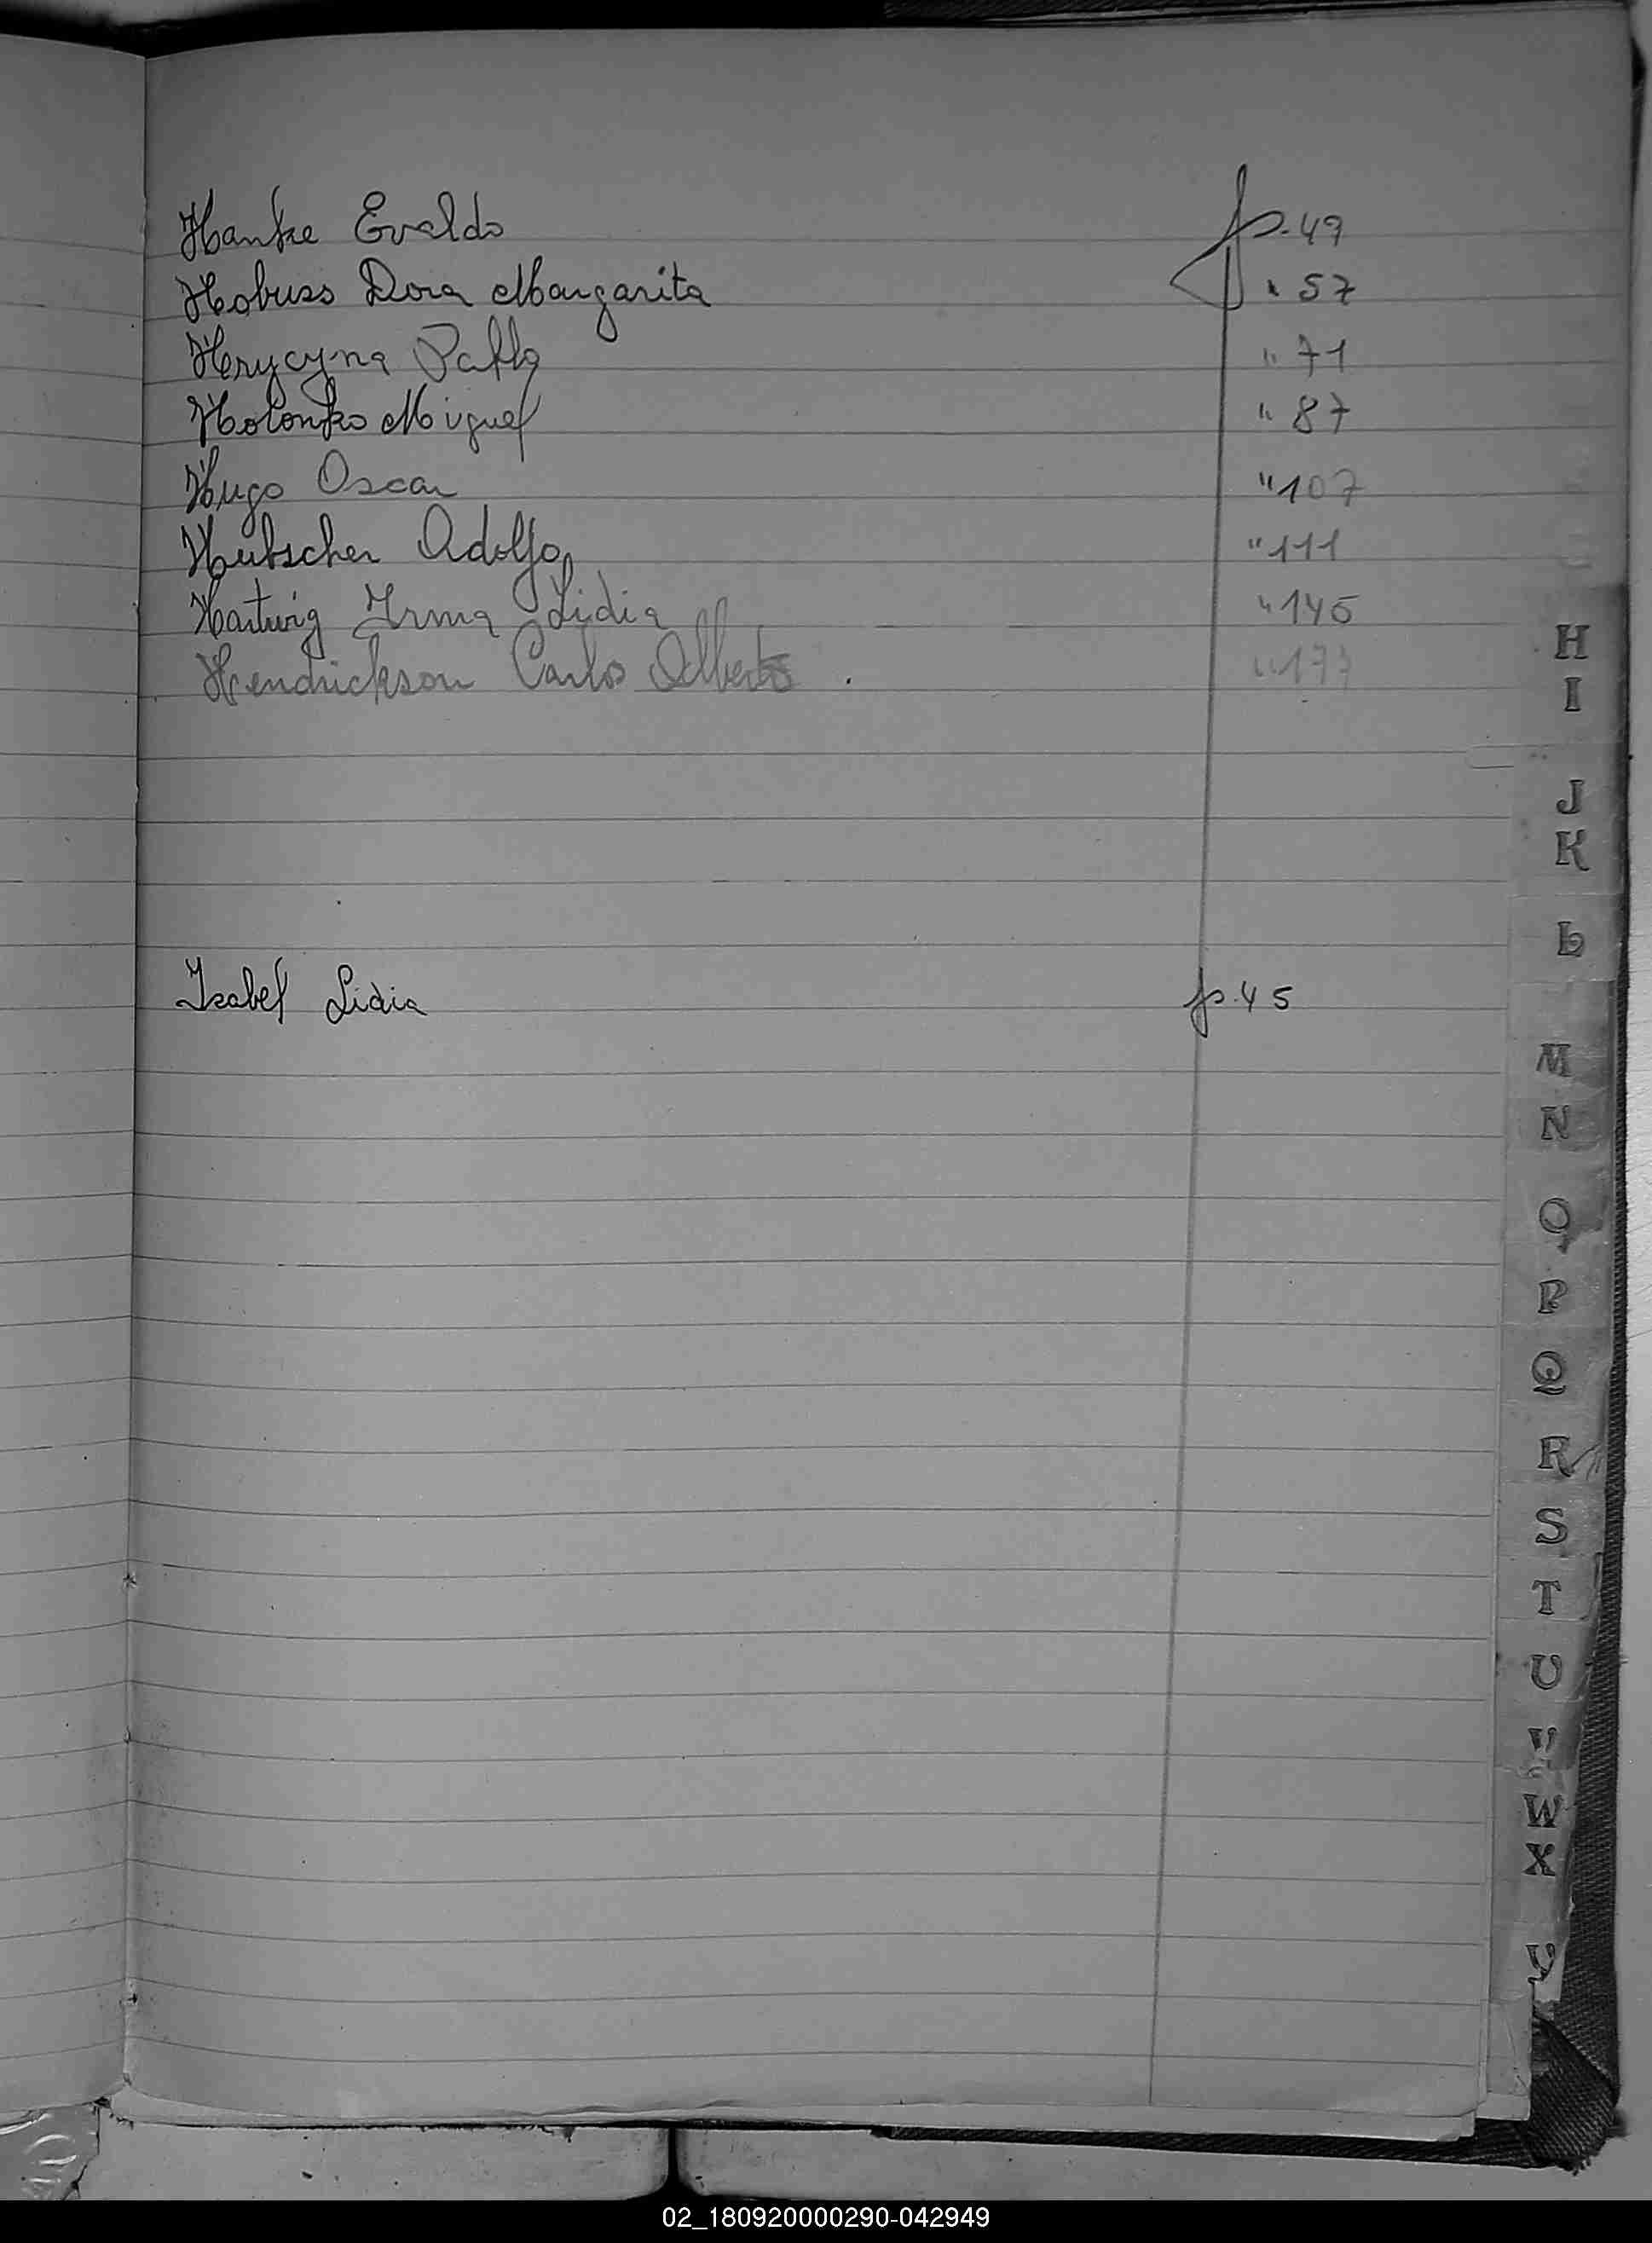 Hanke Evaldo p. 49
Hobuss Dora Margarita " 57
Hrycyna Pablo " 71
Holonko Miguel " 87
Hugo Oscar " 107
Hubscher Adolfo " 111
Hartwig Irma Lidia " 145
Hendrickson Carlos Alberto . " 177
Isabel Lidia p. 45
H
I
J
K
L
M
N
O
P
Q
R
S
T
U
V
W
X
Y
02_180920000290-042949